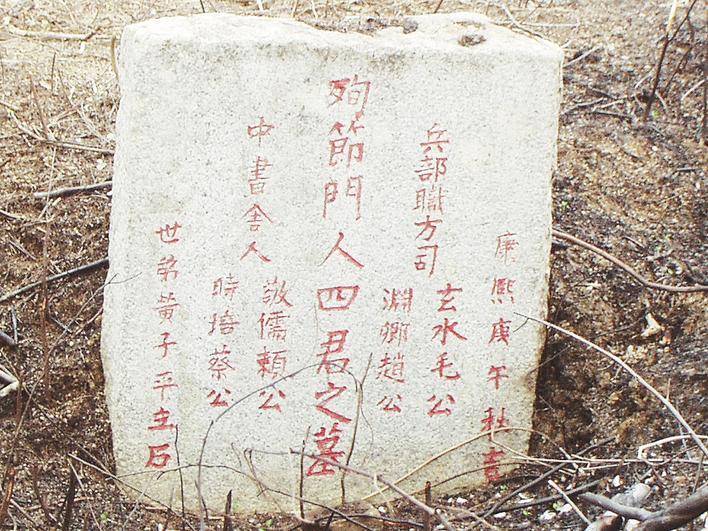 康熙庚午秋書
兵部職方司
玄水毛公
淵卿趙公
殉節門人四君之墓
中書舍人
敬儒賴公
時培蔡公
世弟黃子平立石